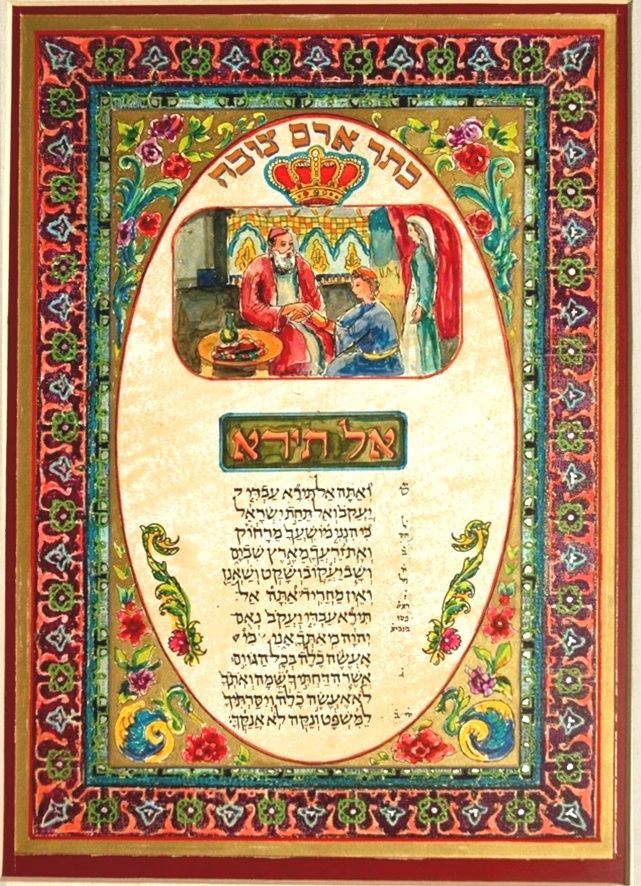 כתר ארם צובה
אל תירא
ואתה אל תירא עבדי
יעקב ואל תחת ישראל
כי הנני מושעך מרחוק
ואת זרעך מארץ שבים
ושב יעקוב ושקט ושאנן
ואין מחריד אתה אל
תירא עבדי יעקב נאם
יהוה כי אתך אני כי
אעשה כלה בכל הגוים
אשר הדחתיך שמה ואתך
לא אעשה כלה ויסרתיך
למשפט ונקה לא אנקך